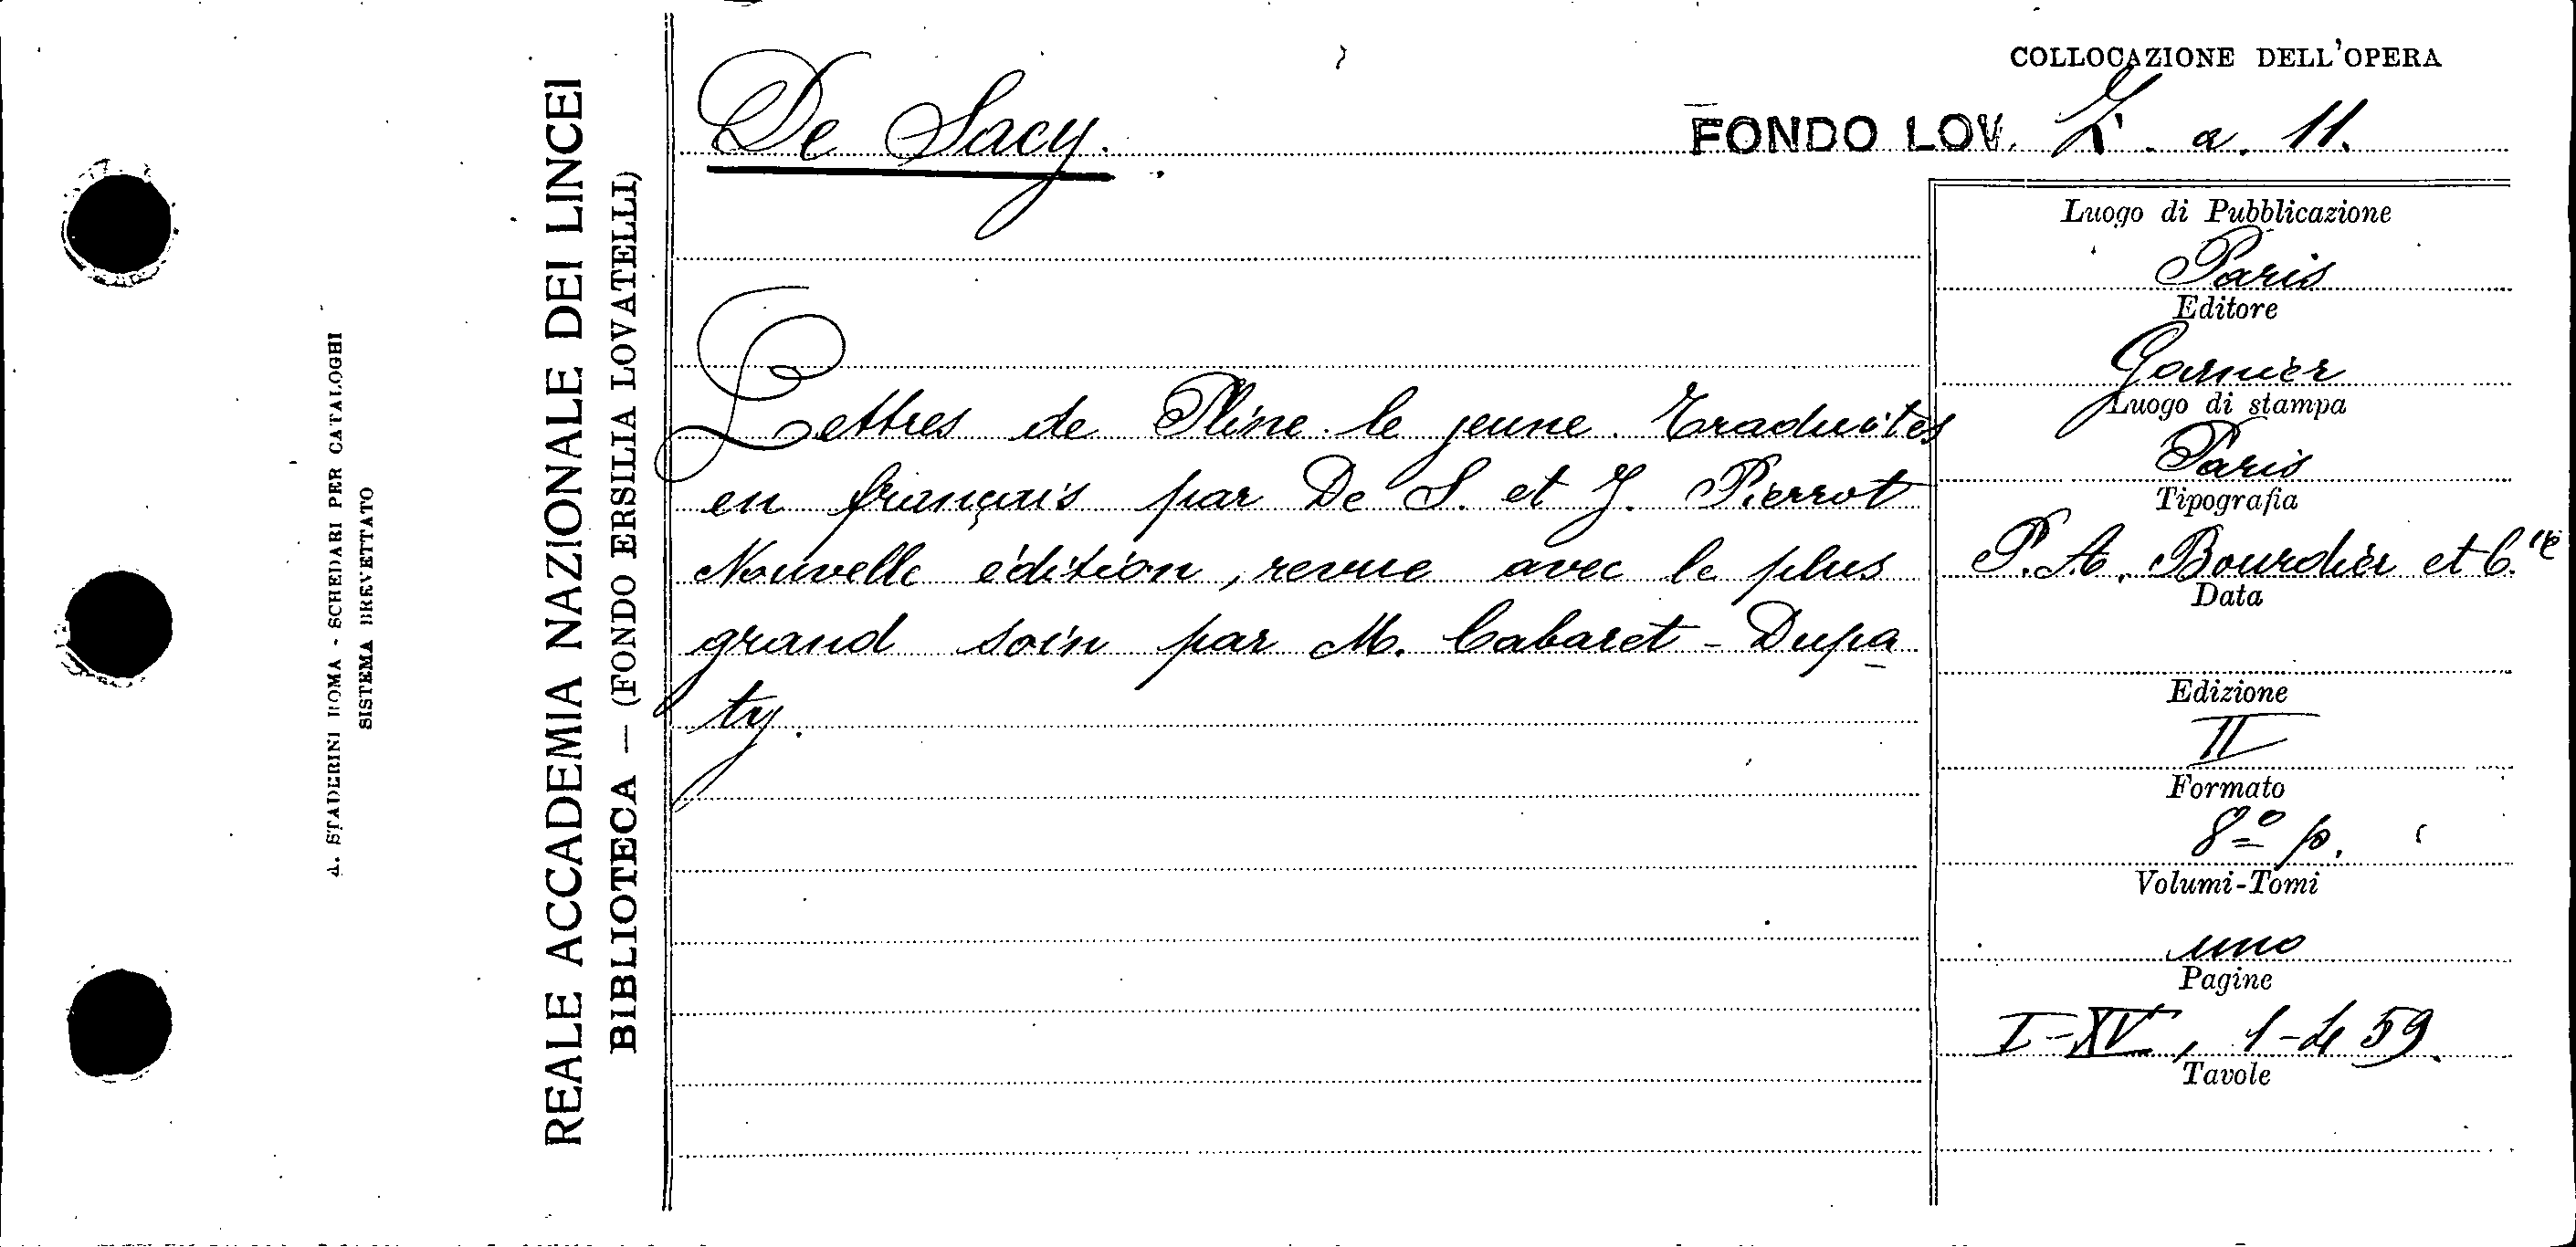 COLLOCAZIONE DELL'OPERA
De Sacy.
FONDO LOV. Z. a. 11.
Lettres de Pline le jeune. Traduites
en français par De S. et J. Pierrot
Nouvelle édition, revue avec le plus
grand soin par M. Cabaret-Dupa
ty.
Luogo di Pubblicazione
Paris
Editore
Garnier
Luogo di stampa
Paris
Tipografia
P. A. Bourdier et C.ie
Data
Edizione
II
Formato
8º p.
Volumi-Tomi
uno
Pagine
I-XV, 1-459.
Tavole
REALE ACCADEMIA NAZIONALE DEI LINCEI
BIBLIOTECA — (FONDO ERSILIA LOVATELLI)
A. STADERINI ROMA - SCHEDARI PER CATALOGHI
SISTEMA BREVETTATO